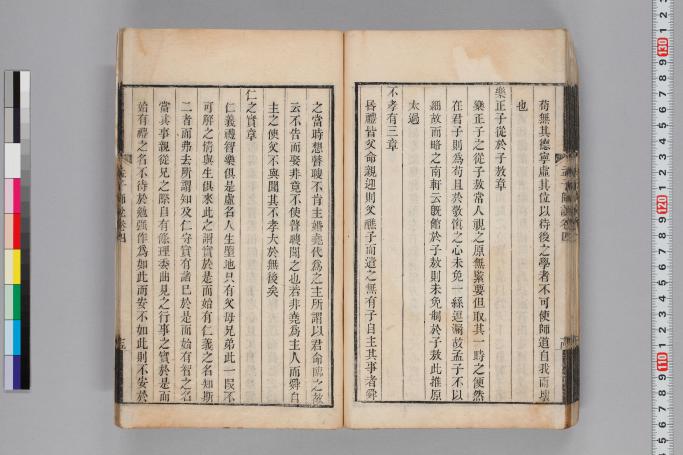 苟無其德寧虛其位以待後之學者不可使師道自我而壞
也
樂正子從於子敖章
樂正子之從子敖當人視之原無緊要但取其一時之便然
在君子則為苟且於敎饵之心未免一絲逗漏故孟子不以
細故而略之南軒云旣館於子敖則未免制於子敖此推原
太過
不孝有三章
昏禮皆父命親迎則父醮子而遣之無有子自主其事者舜
之當時想瞽瞍不肯主婚堯代為之主所謂以君命臨之故
云不告而娶非竟不使瞽瞍聞之也若非堯為主人而舜自
主之使父不與聞其不孝大於無後矣
仁之實章
仁義禮智樂俱是虛名人生墮地只有父母兄弟此一段不
可解之情與生俱來此之謂實於是而始有仁義之名知斯
二者而弗去所謂知及仁守實有諸已於是而始有智之名
當其事親從兄之際自有條理委曲見之行事之實於是而
始有禮之名不待於勉强作為如此而安不如此則不安於
孟子師說卷四